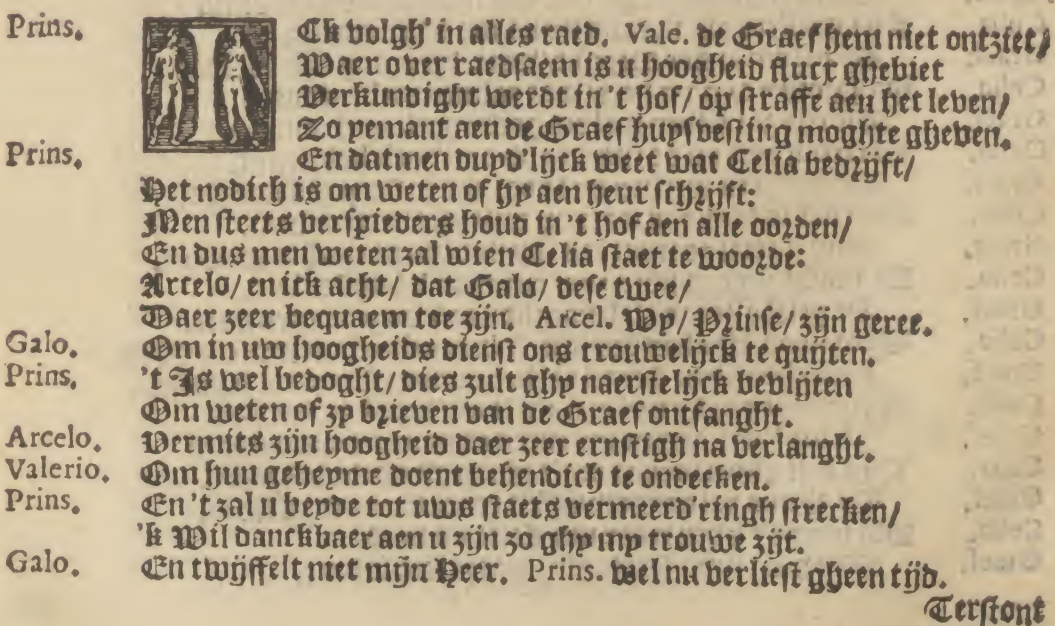 Prins. ICk volgh' in alles raed. Vale. de Graef hem niet ontziet/
Waer over raedsaem is u hoogheid flucx ghebiet
Verkundight werdt in 't hof/ op straffe aen het leven/
Zo yemant aen de Graef huysvesting moghte gheven.
Prins. En datmen duyd'lijck weet wat Celia bedrijft/
Het nodich is om weten of hy aen heur schrijft:
Men steets verspieders houd in 't hof aen alle oorden/
En dus men weten zal wien Celia staet te woorde:
Arcelo/ en ick acht/ dat Galo/ dese twee/
Daer zeer bequaem toe zijn. Arcel. Wy/ Prinse/ zijn geree.
Galo. Om in uw hoogheids dienst ons trouwelijck te quijten.
Prins. 't Is wel bedoght/ dies zult ghy naerstelijck bevlijten
Om weten of zy brieven van de Graef ontfanght.
Arcelo. Vermits zijn hoogheid daer zeer ernstigh na verlanght.
Valerio. Om hun geheyme doent behendich te ondecken.
Prins. En 't zal u beyde tot uws staets vermeerd'ringh strecken/
'k Wil danckbaer aen u zijn zo ghy my trouwe zijt.
Galo. En twijffelt niet mijn Heer. Prins. wel nu verliest gheen tijd.
Terstont